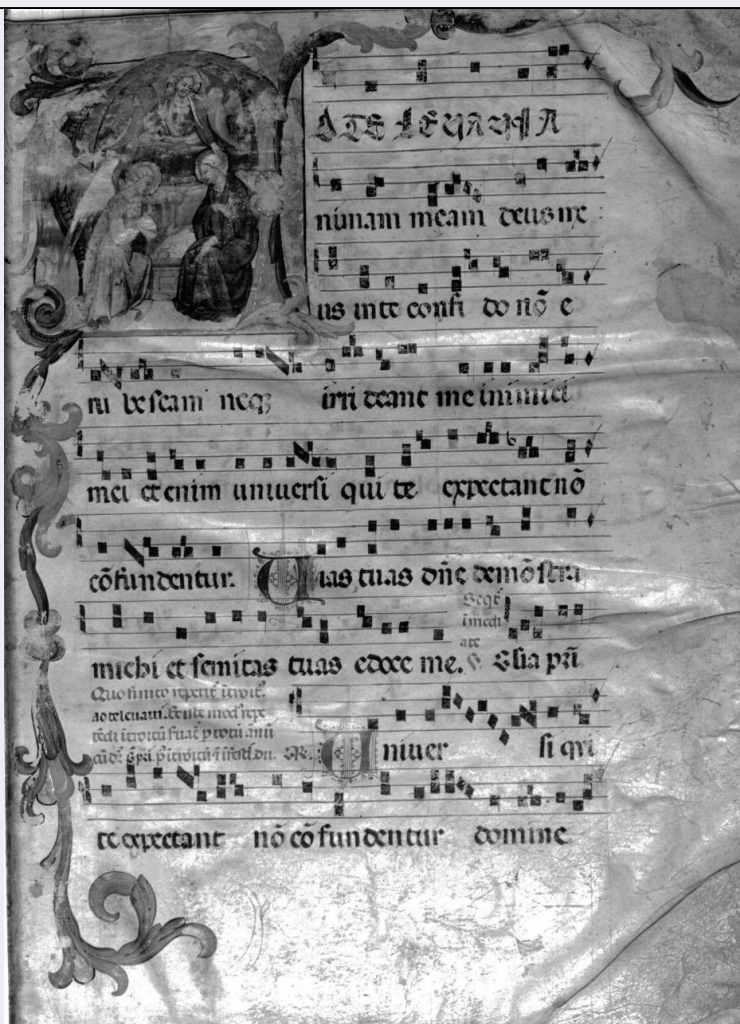 AD TE LEVAVI A
nimam meam deus me
us in te confi do nō e
ru bescam neqꝫ irri deant me inimici
mei et enim universi qui te expectant nō
cōfundentur. Vias tuas dn̄e demōstra
michi et semitas tuas edoce me. Glia pr̄i
Quo finito
Univer si qui
te expectant nō cōfundentur domine